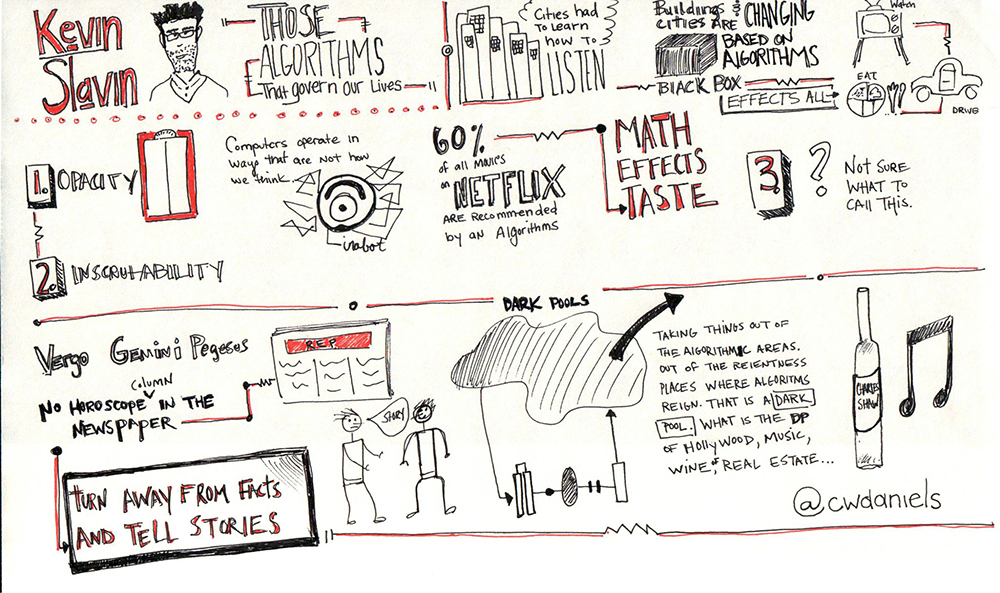 Kevin
Slavin
THOSE
ALGORITHMS
That govern our Lives
Cities had
To Learn
how To
LISTEN
Buildings &
cities ARE CHANGING
BASED ON
ALGORITHMS
BlACK BOX
EFFECTS ALL
Watch
EAT
DRIVE
1. OPACITY
Computers operate in
ways that are not how
we think.
irobot
60%
of all Movies
on
NETFLIX
ARE Recommended
by an Algorithms
MATH
EFFECTS
TASTE
3. ?
NOT SURE
WHAT TO
CALL THIS.
2. INSCRUTABILITY
DARK POOLS
Vergo Gemini Pegesus
COLUMN
NO HOROSCOPE IN THE
NEWSPAPER
R.E.P.
STORY
TURN AWAY FROM FACTS
AND TELL STORIES
TAKING THINGS OUT OF
THE ALGORITHMIC AREAS.
OUT OF THE REIENTNESS
PLACES WHERE ALGORITMS
REIGN. THAT IS A DARK
POOL. WHAT IS THE DP
OF HOLLYWOOD, MUSIC,
WINE, & REAL ESTATE...
CHARLES
SHAW
@cwdaniels